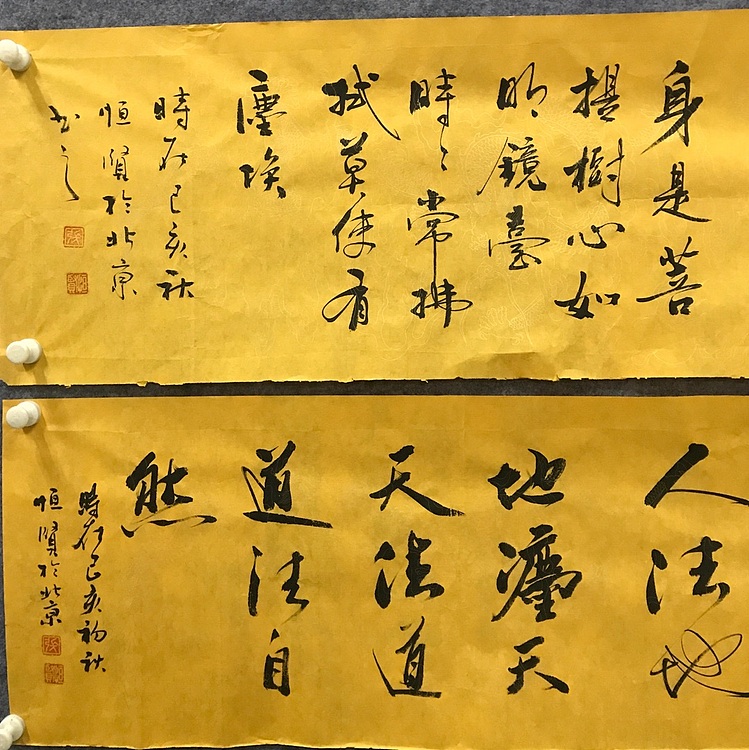 身是菩
提樹心如
明鏡臺
時〻常拂
拭莫使有
塵埃
時在己亥秋
恒賢於北京
书之
人法地
地灋天
天法道
道法自
然
時在己亥初秋
恒賢於北京